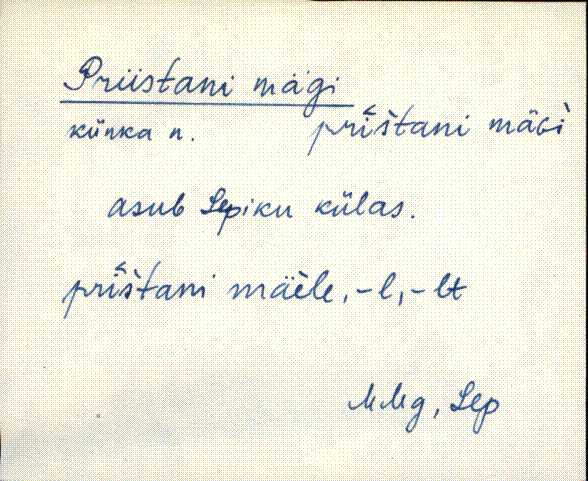 Priistani mägi
künka n. pri̬i̬štani mäGi
asub Lepiku külas.
pri̬štani mäèle, -l, -lt
MMg, Lep